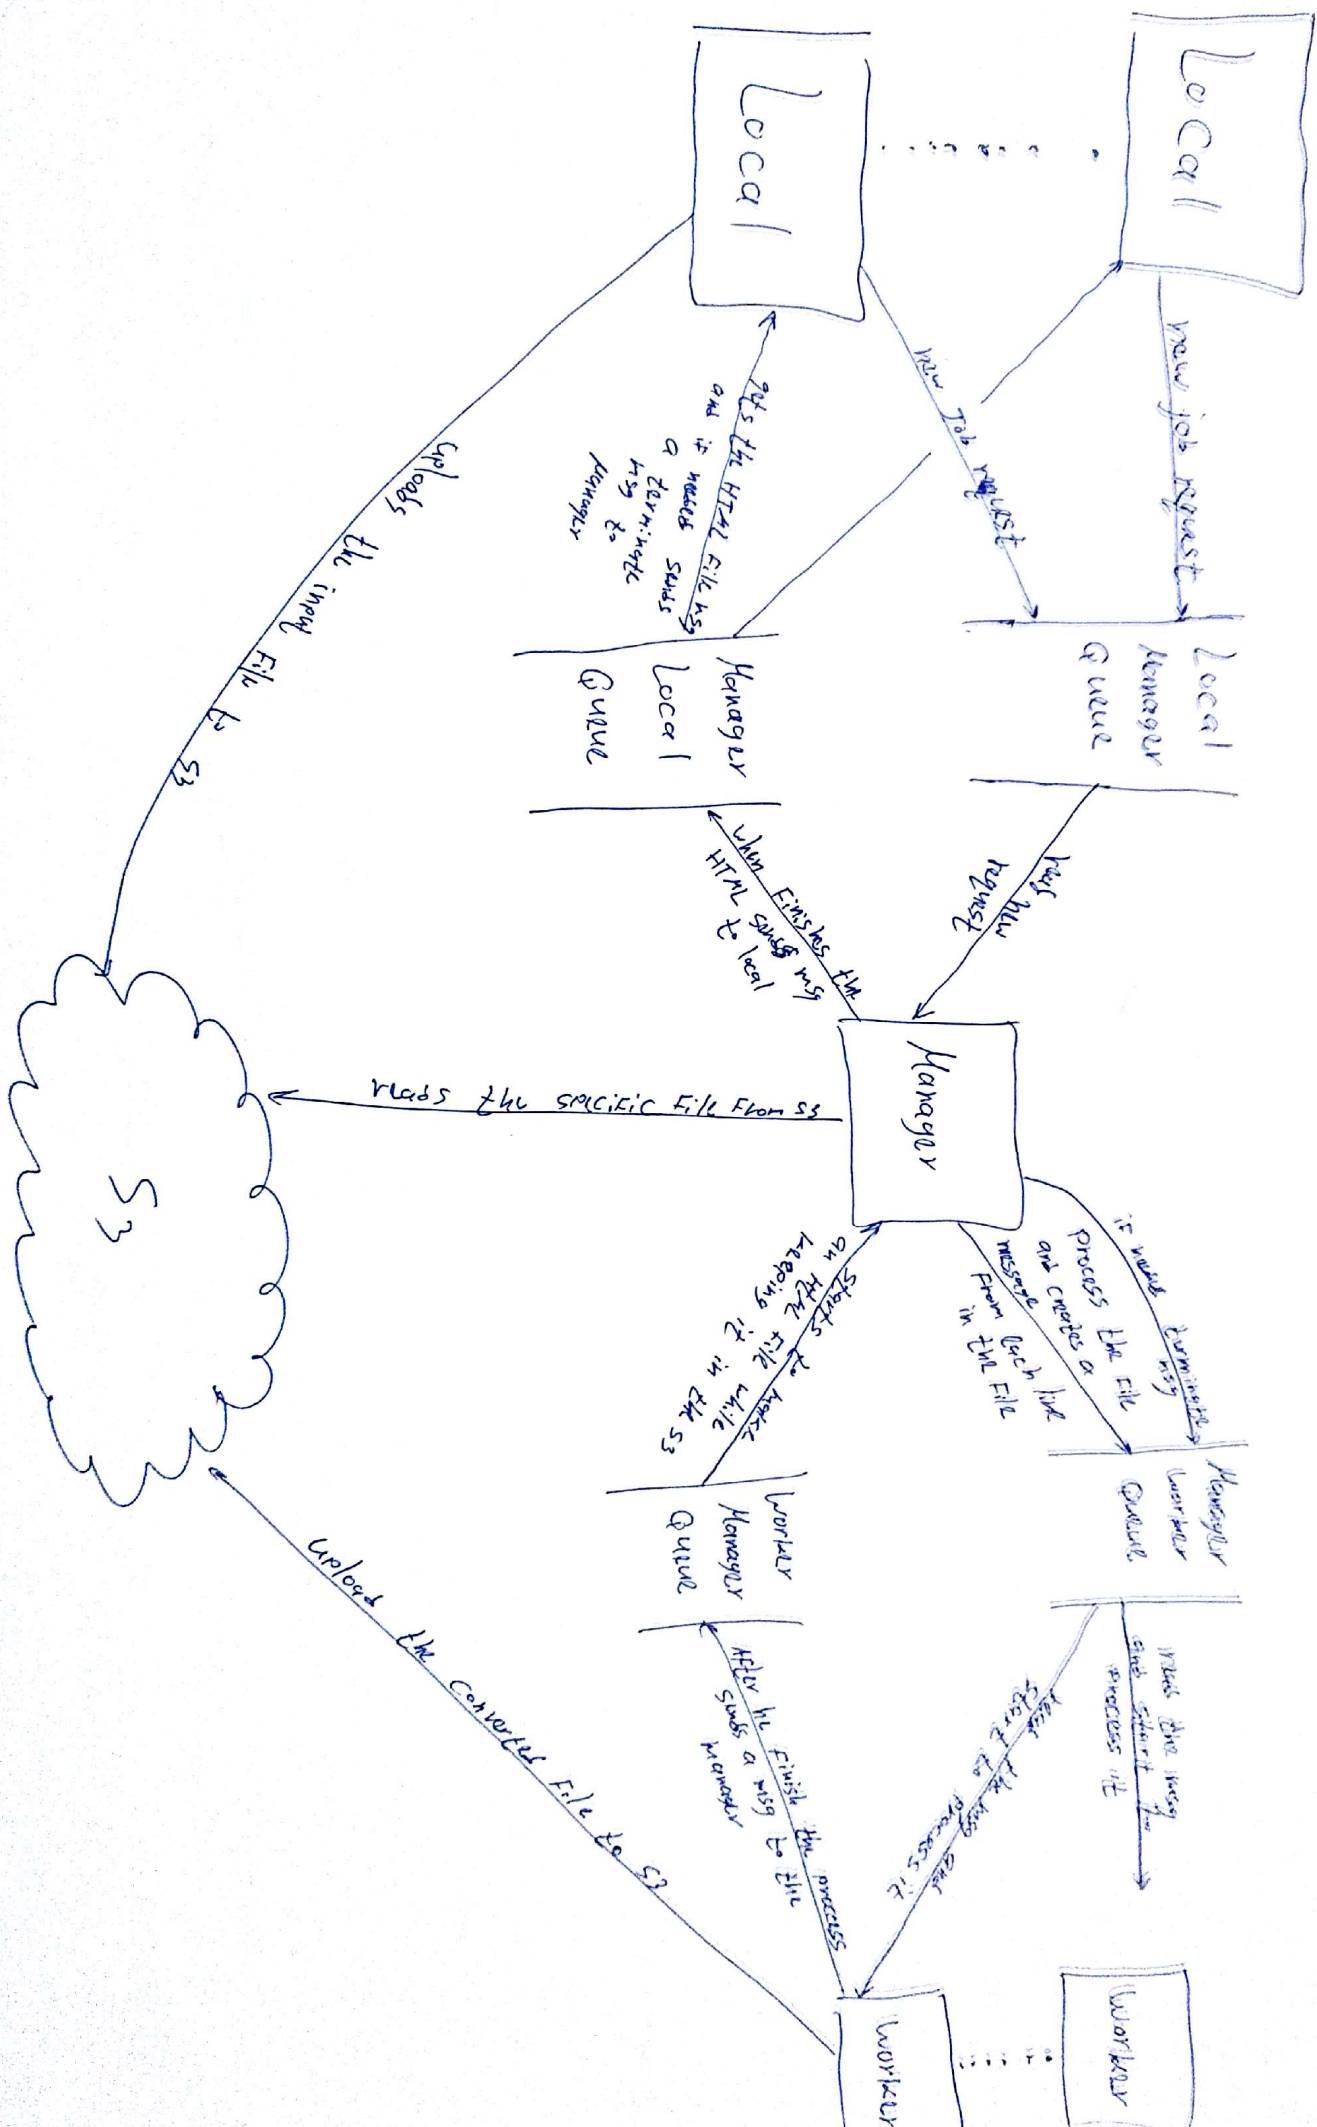 Local
Local
new job request
new Job request
Local
Manager
Queue
gets the HTML File msg
and if needed sends
a terminate
msg to
Manager
Manager
Local
Queue
uploads the input File to S3
new
request
when Finishes the
HTML sends msg
to local
Manager
reads the specific File From S3
S3
terminate
msg
process the File
and creates a
message
From each line
in the File
Manager
Worker
Queue
starts to
an HTML file while
keeping it in the S3
Worker
Manager
Queue
read the msg
and start to
process it
read the msg and
start to process it
After he Finish the process
sends a msg to the
manager
upload the converted File to S3
Worker
Worker